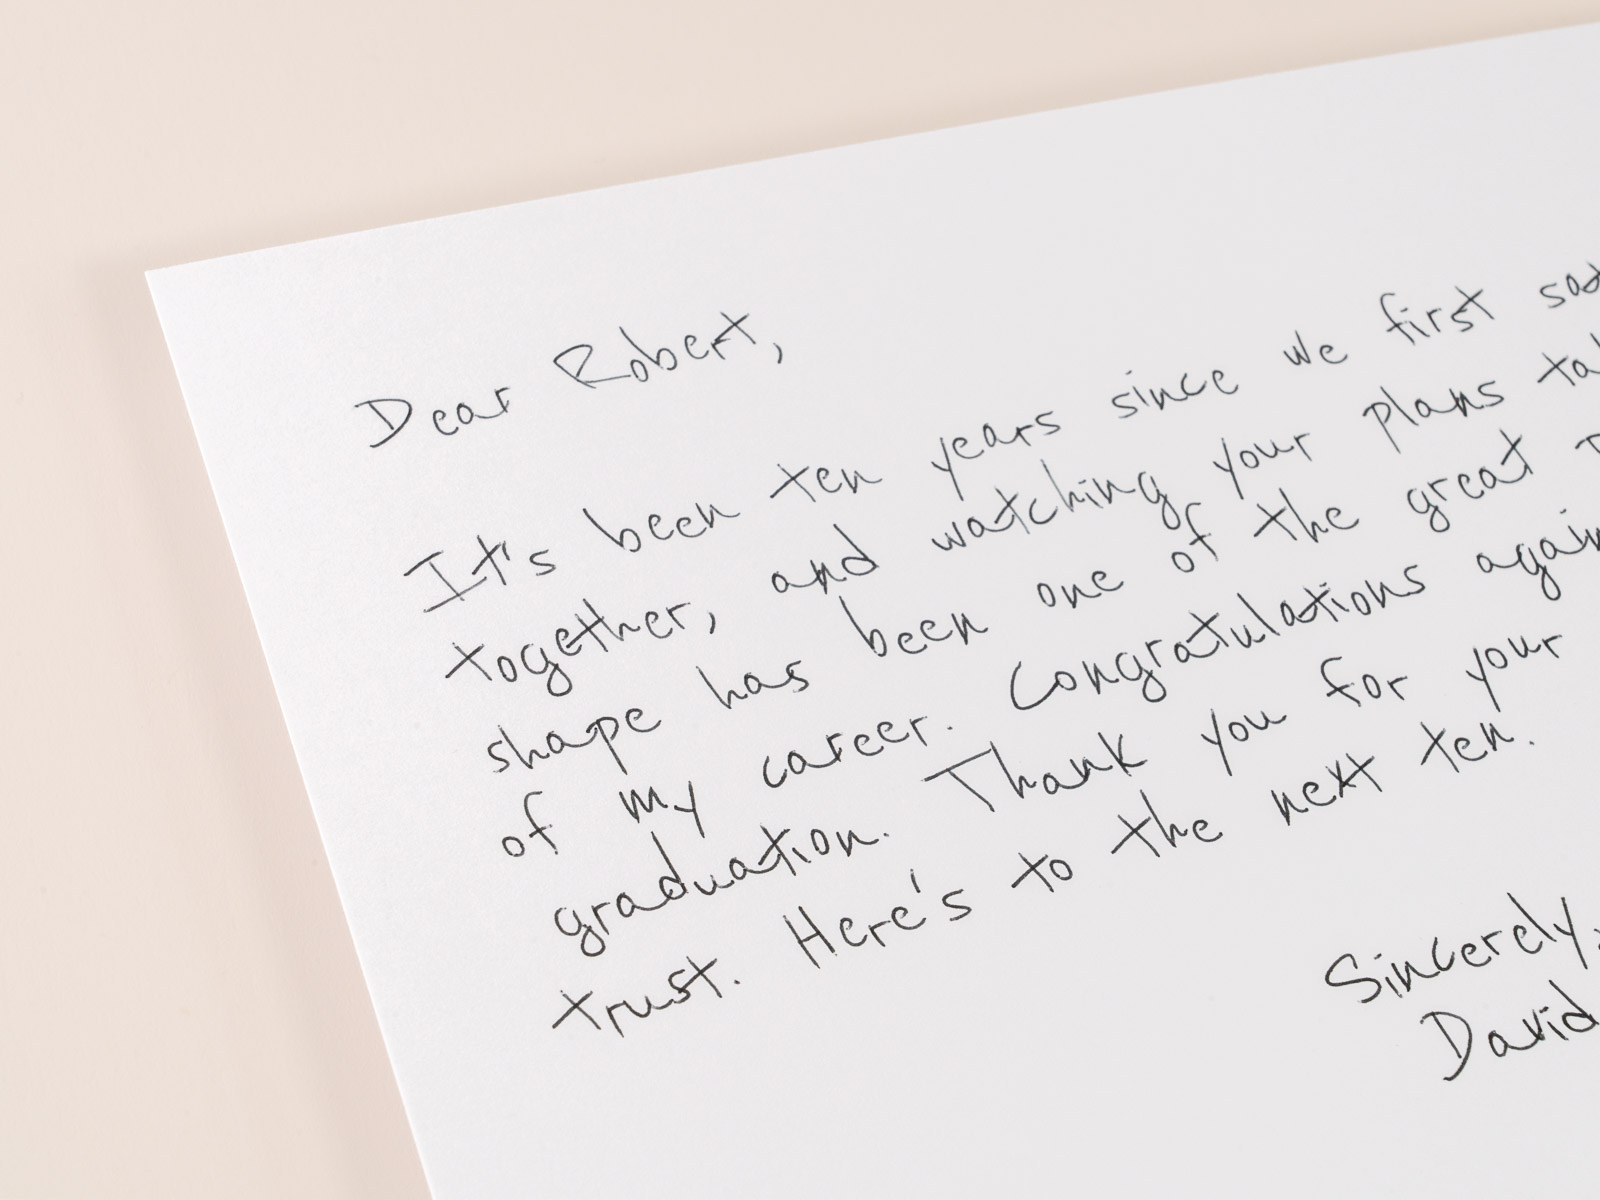 Dear Robert,
It's been ten years since we first sat
together, and watching your plans
shape has been one of the great
of my career. Congratulations again
graduation. Thank you for your
trust. Here's to the next ten.
Sincerely,
David